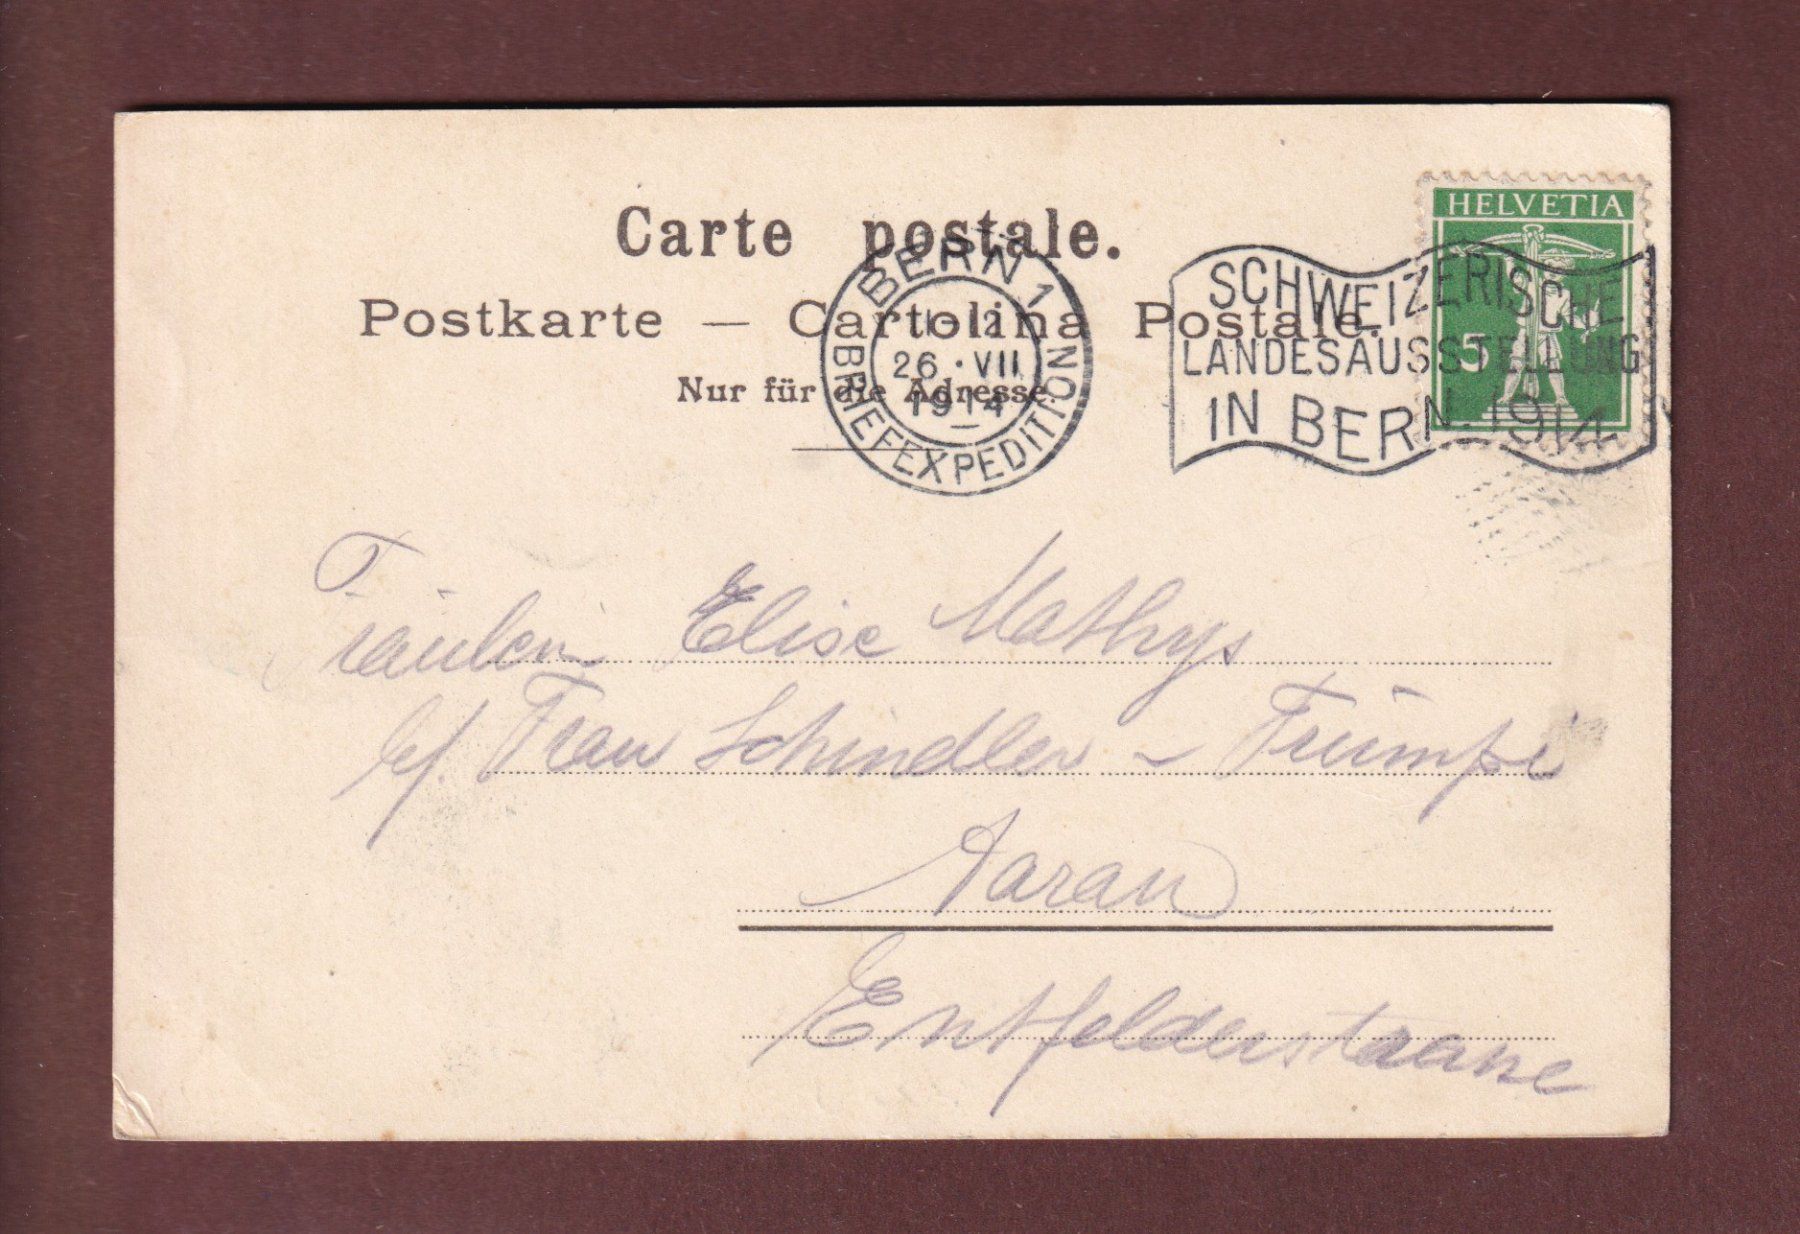 Carte postale.
Postkarte — Cartolina Postale.
Nur für die Adresse.
BERN 1
11-12
26.VII
1914
BRIEFEXPEDITION
SCHWEIZERISCHE
LANDESAUSSTELLUNG
IN BERN. 1914
HELVETIA
5
Fräulein Elise Mathys
b/. Frau Schindler - Trümpi
Aarau
Entfelderstrasse